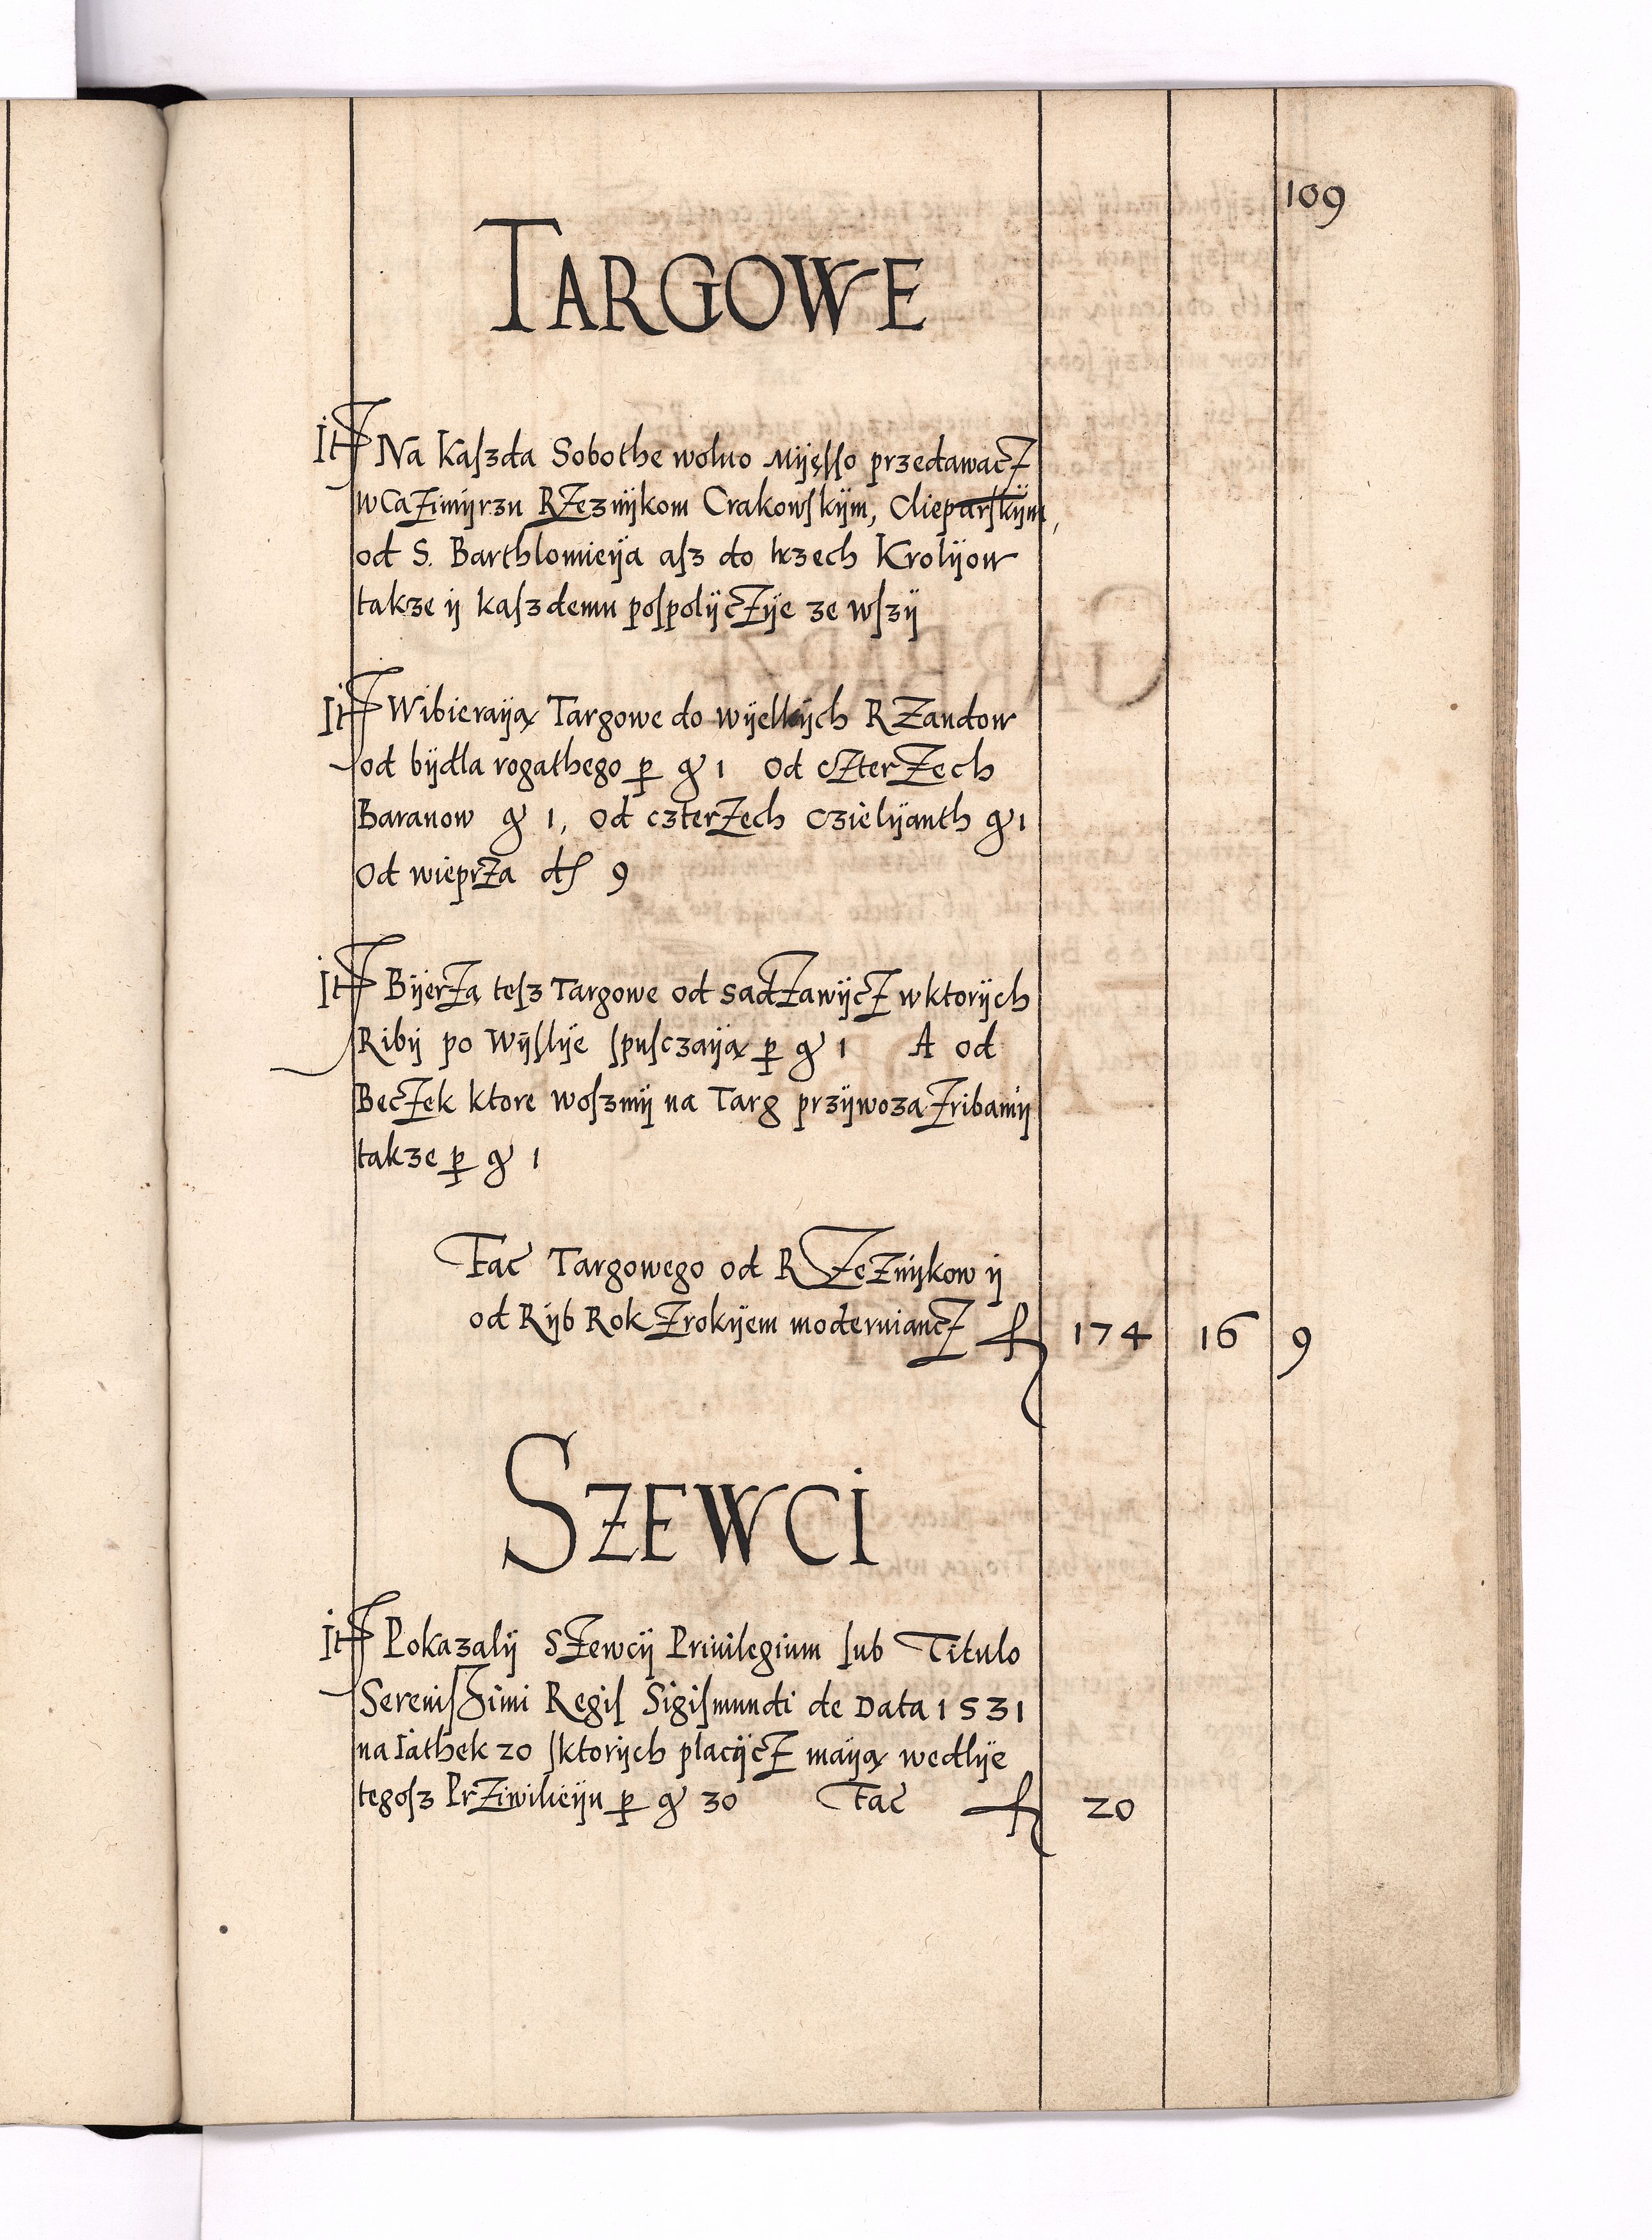 109
TARGOWE
It Na kaſzda Sobothe wolno Myęſſo przedawacz
w Cazimyrzu Rzeznykom Crakowſkym, Clieparſkym,
od S. Barthlomieya aſz do trzech Krolyow
takze y kaſzdemu poſpolyczye ze wſzy
It Wibieraya Targowe do wyelkych Rzandow
od bydla rogathego p gr 1 od czterzech
Baranow gr 1, od czterzech czielyanth gr 1
od wieprza d 9
It Byerza teſz Targowe od sadzawycz w ktorych
Riby po Wyſlye ſpuſczaya p gr 1 A od
Beczek ktore woſzmy na Targ przywoza z ribamy
takze p gr 1
Fac Targowego od Rzeznykow y
od Ryb Rok z rokyem moderniancz f 174 16 9
SZEWCI
It Pokazaly szewcy Priuilegium ſub Titulo
Sereniſſimi Regiſ Sigiſmundi de Data 1531
na Iathek 20 ſktorych placycz maya wedlye
tegoſz Prziwilieyu p gr 30 Fac f 20